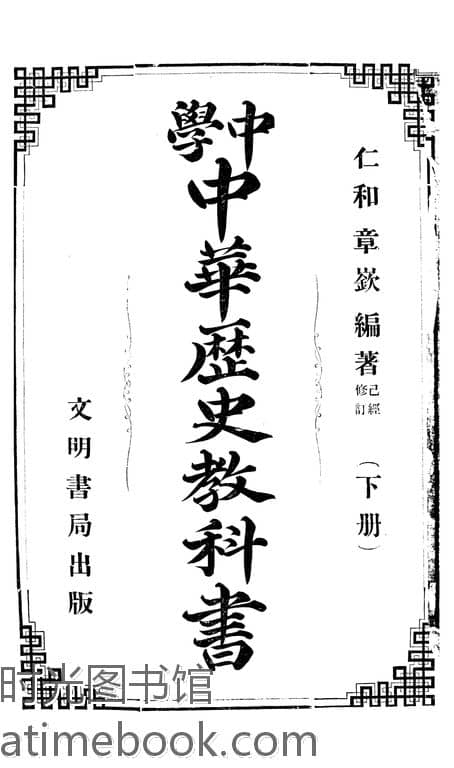 仁和章嶔編著 已經修訂 （下册）
中學
中華歷史教科書
文明書局出版
时光图书馆
atimebook.com